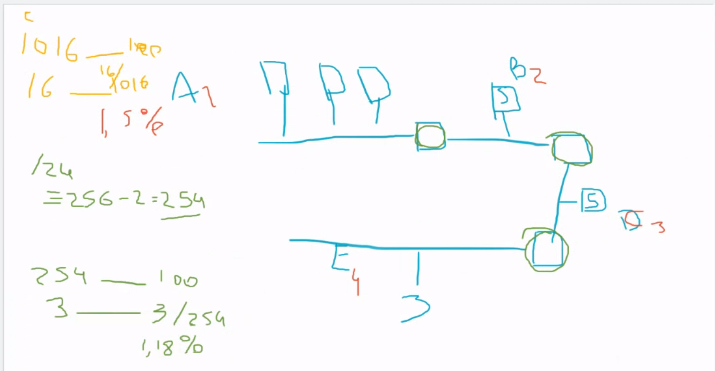 1016 — 100
16 — 16/1016
1,5%
A 1
/24
= 256 - 2 = 254
254 — 100
3 — 3/254
1,18%
B 2
S
S
3
E
4
3